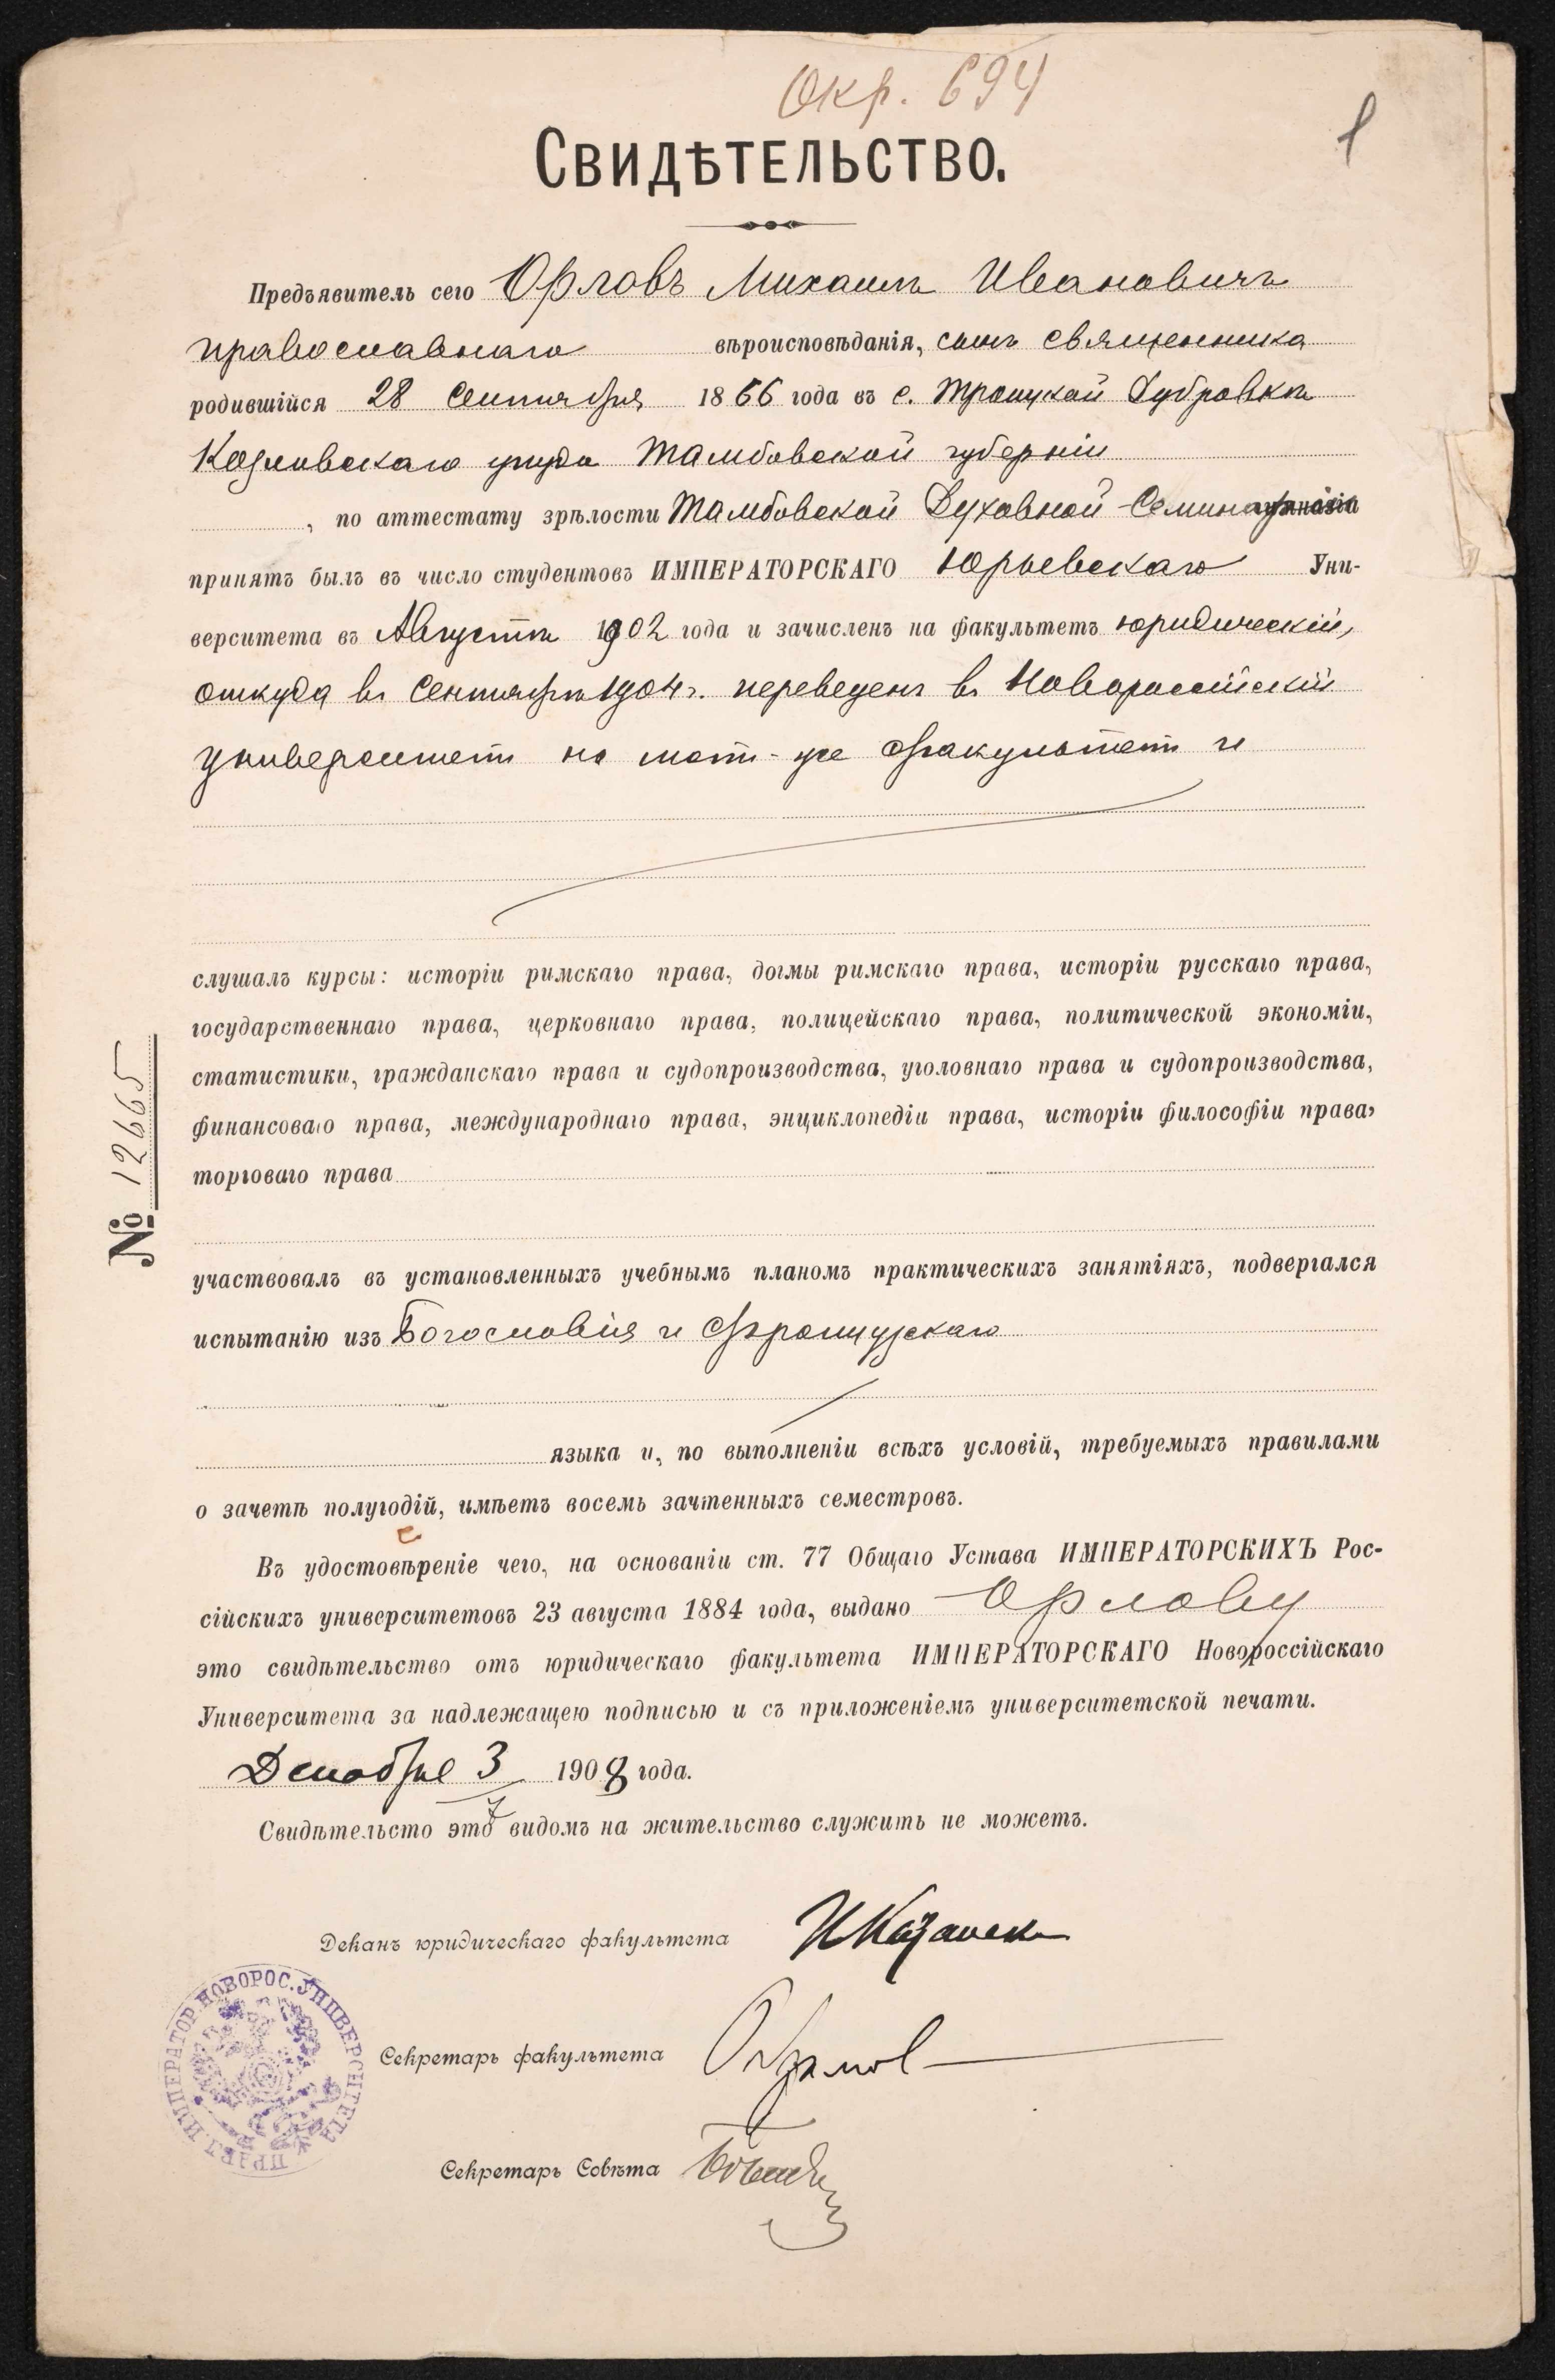 Окр. 694
1
Свидѣтельство.
Предъявитель сего Орловъ Михаилъ Ивановичъ
православнаго вѣроисповѣданія, сынъ священника
родившійся 28 Сентября 1866 года въ с. Троицкой Дубровкѣ
Козловскаго уѣзда Тамбовской губерніи
, по аттестату зрѣлости Тамбовской Духовной Семин
принятъ былъ въ число студентовъ ИМПЕРАТОРСКАГО Юрьевскаго Уни-
верситета въ Августѣ 1902 года и зачисленъ на факультетъ юридическій,
откуда въ Сентябрѣ 1904 г. переведенъ въ Новороссійскій
университетъ на факультетъ и
слушалъ курсы: исторіи римскаго права, догмы римскаго права, исторіи русскаго права,
государственнаго права, церковнаго права, полицейскаго права, политической экономіи,
статистики, гражданскаго права и судопроизводства, уголовнаго права и судопроизводства,
финансоваго права, международнаго права, энциклопедіи права, исторіи философіи права,
торговаго права
№ 12665
участвовалъ въ установленныхъ учебнымъ планомъ практическихъ занятіяхъ, подвергался
испытанію изъ Богословія и Французскаго
языка и, по выполненіи всѣхъ условій, требуемыхъ правилами
о зачетѣ полугодій, имѣетъ восемь зачтенныхъ семестровъ.
Въ удостовѣреніе чего, на основаніи ст. 77 Общаго Устава ИМПЕРАТОРСКИХЪ Рос-
сійскихъ университетовъ 23 августа 1884 года, выдано Орлову
это свидѣтельство отъ юридическаго факультета ИМПЕРАТОРСКАГО Новороссійскаго
Университета за надлежащею подписью и съ приложеніемъ университетской печати.
Декабря 3 1908 года.
Свидѣтельсто это видомъ на жительство служить не можетъ.
Деканъ юридическаго факультета
Секретарь факультета
Секретарь Совѣта
ИМПЕРАТОР. НОВОРОС. УНИВЕРСИТЕТА